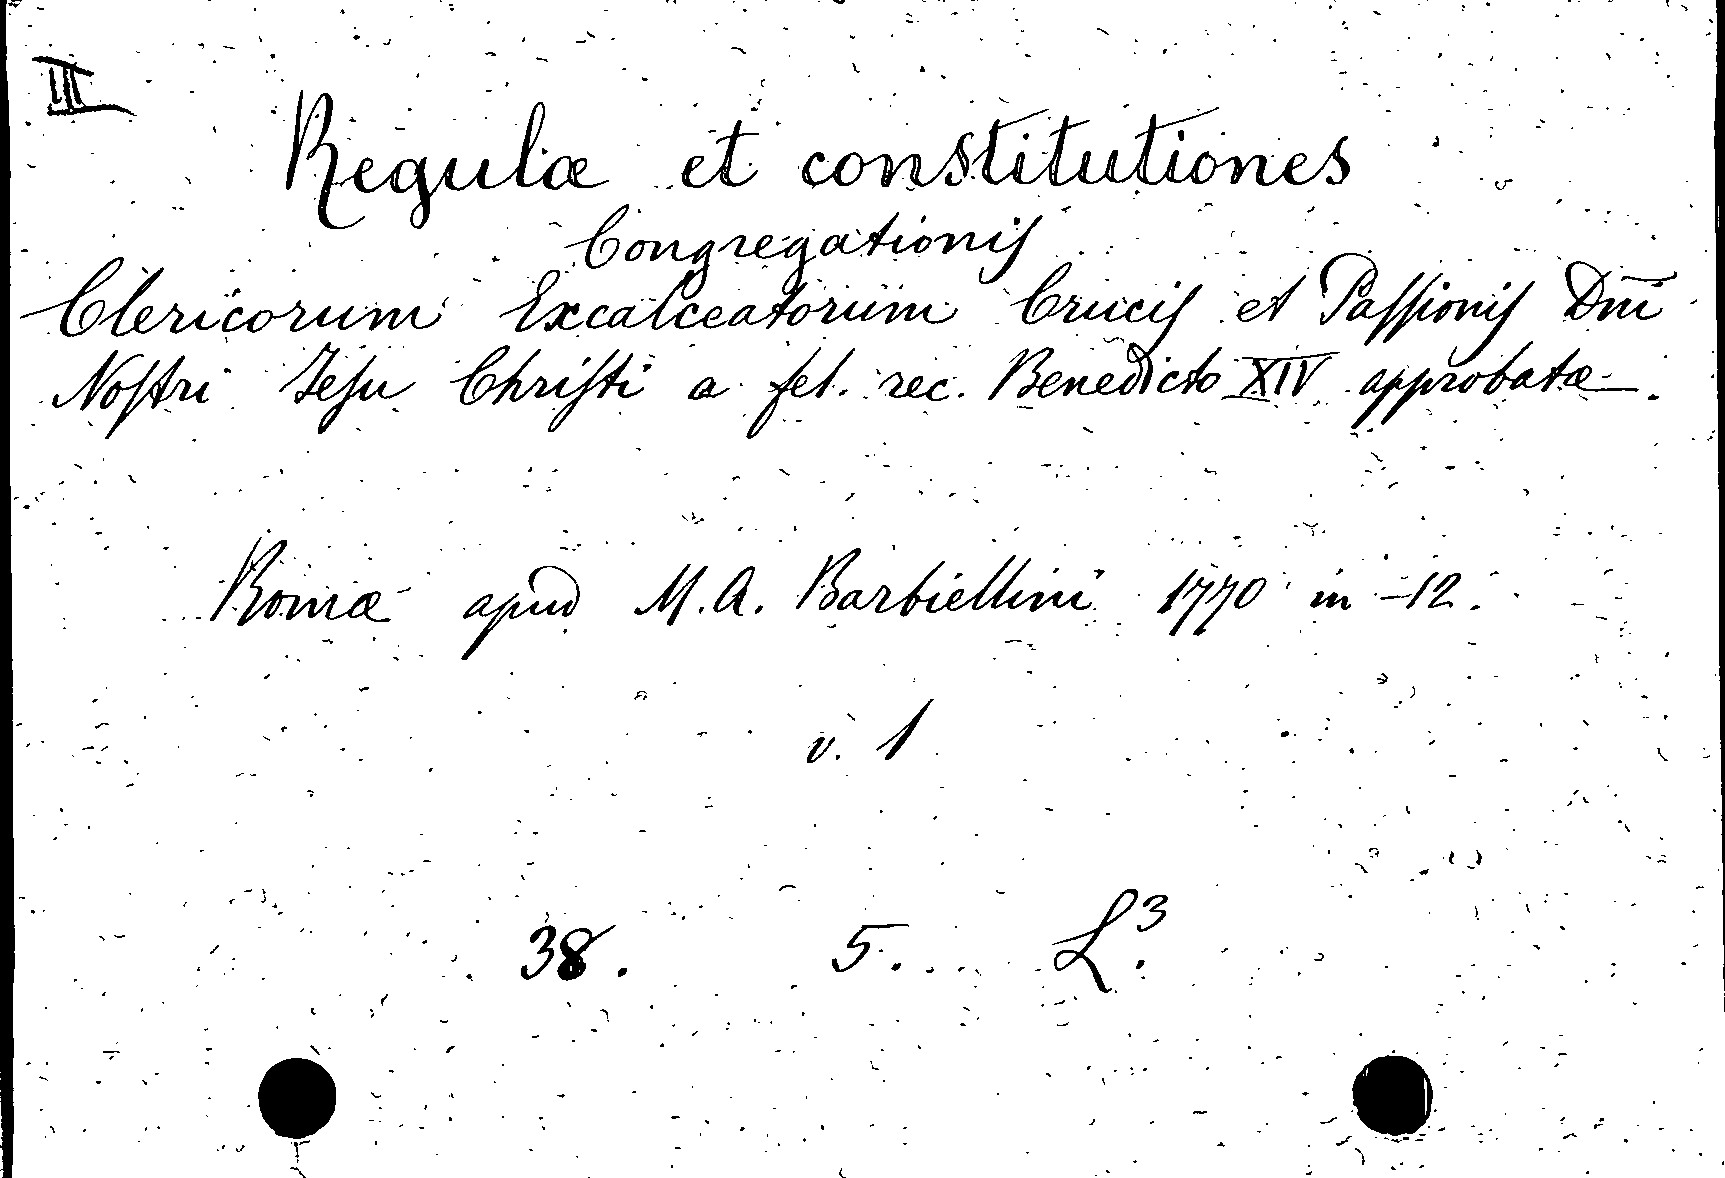 III
Regulæ et constitutiones
Congregationis
Clericorum Excalceatorum Crucis et Paſſionis Dn̄i
Noſtri Jeſu Chriſti a fel. rec. Benedicto XIV approbatæ.
Romæ apud M.A. Barbiellini 1770 in-12.
v. 1
38. 5. L.³